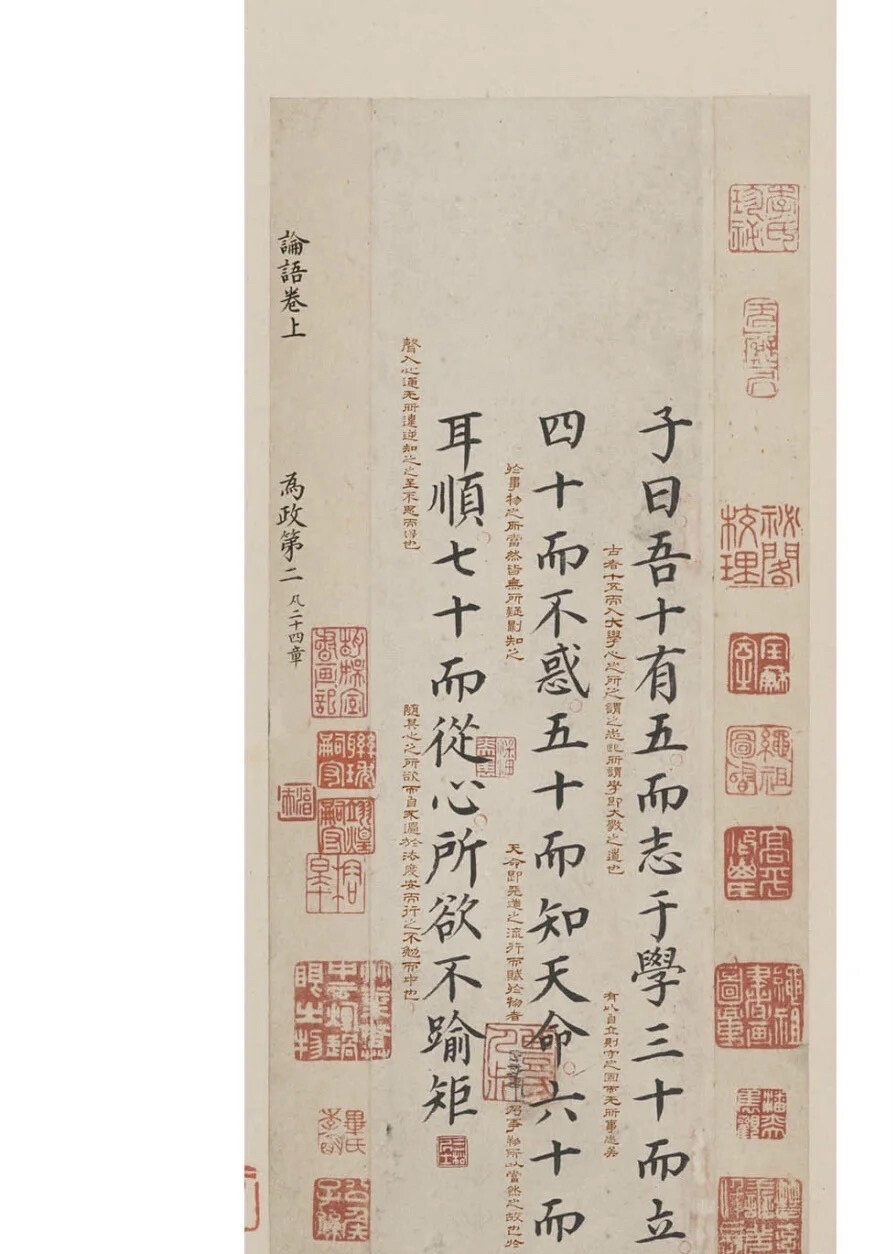 秘閣校理
子曰吾十有五而志于學三十而立
古者十五而入大學心之所之謂之志此所謂學即大學之道也
有以自立則守之固而无所事志矣
四十而不惑五十而知天命六十而
於事物之所當然皆無所疑則知之
天命即天道之流行而賦於物者
乃事物所以當然之故也於
耳順七十而從心所欲不踰矩
聲入心通无所違逆知之之至不思而得也
隨其心之所欲而自不過於法度安而行之不勉而中也
論語卷上
為政第二 凡二十四章